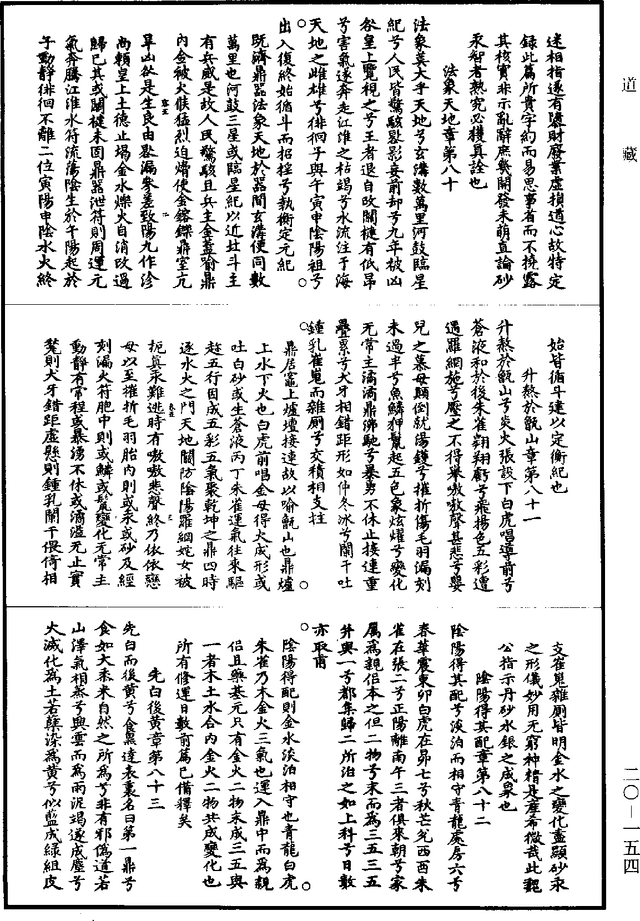 道藏
迷相指遂有隳財廢業虛損道心故特定
錄此篇所貴字約而易思事省而不撓露
其核實非示亂辭庶幾開發未萌直論砂
汞智者熟究必獲真詮也
法象天地章第八十
法象莫大乎天地兮玄溝數萬里河鼓臨星
紀兮人民皆驚駭晷影妄前却兮九年被凶
咎皇上覽視之兮王者退自改關楗有低昂
兮害氣遂奔走江淮之枯竭兮水流注于海
天地之雌雄兮徘徊子與午寅申陰陽祖兮
出入復終始循斗而招搖兮執衡定元紀
既濟鼎器法象天地於器間玄溝使同數
萬里也河鼓三星或臨星紀以近壯斗主
有兵威是故人民驚駭且兵主金蓋喻鼎
內金被火候猛烈迫熸使金鎔鑠鼎室亢
旱凶咎是生良由晷漏參差致陽九作沴
尚賴皇上土德止堨金水爍火自消改過
歸已其或關楗未固鼎器泄符則周運元
氣奔騰江淮水符流蕩陰生於午陽起於
子動靜徘徊不離二位寅陽申陰水火終
始皆循斗建以定衡紀也
升熬於甑山章第八十一
升熬於甑山兮炎火張設下白虎唱導前兮
蒼液和於後朱雀翱翔戲兮飛揚色五彩遭
遇羅網施兮壓之不得舉嗷嗷聲甚悲兮嬰
兒之慕母顛倒就湯鑊兮摧折傷毛羽漏刻
未過半兮魚鱗狎鬣起五色象炫耀兮變化
無常主潏潏鼎沸馳兮暴勇不休止接連重
疊累兮犬牙相錯距形如仲冬冰兮闌干吐
鍾乳崔嵬而雜廁兮交積相支拄
鼎居竈上爐壇接連故以喻甑山也鼎爐
上水下火也白虎前唱金母得火成形或
吐白砂或生蒼液丙丁朱雀運氣往來驅
趁五行因成五彩五氣聚乾坤之鼎四時
逐水火之門天地關防陰陽羅網姹女被
扼真汞難逃時有嗷嗷悲聲終乃依依戀
母以至摧折毛羽胎內則或汞或砂及經
刻漏火符胞中則或鱗或鬣變化无常主
動靜有常程或暴湧不休或滿溢无止實
凳則犬牙錯距虛懸則鍾乳闌干偎倚相
支崔嵬雜廁皆明金水之變化盡顯砂汞
之形儀妙用无窮神精是產希微哉此魏
公指示丹砂水銀之成象也
陰陽得其配章第八十二
陰陽得其配兮淡泊而相守青龍處房六兮
春華震東卯白虎在昴七兮秋芒兌西酉朱
雀在張二兮正陽離南午三者俱來朝兮家
屬為親侶本之但二物兮末而為三五三五
并與一兮都集歸二所治之如上科兮日數
亦取甫
陰陽得配則金水淡泊相守也青龍白虎
朱雀乃木金火三氣也運入鼎中而為親
侶且藥基元只有金火二物末成三五與
一者木土水合內金火二物共成變化也
所有修運日數前篇已備釋矣
先白後黃章第八十三
先白而後黃兮赤黑達表裏名曰第一鼎兮
食如大黍米自然之所為兮非有邪偽道若
山澤氣相蒸兮興雲而為雨泥竭遂成塵兮
火滅化為土若蘗染為黃兮似藍成綠組皮
二〇—一五四